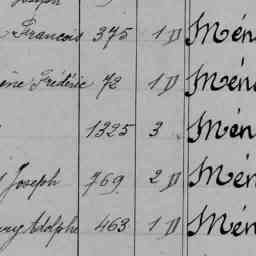 Joseph
François 375 1 D Mén
Frédéric 72 1 D Mén
1325 3 Mén
Joseph 769 2 D Mén
Adolphe 463 1 D Mén